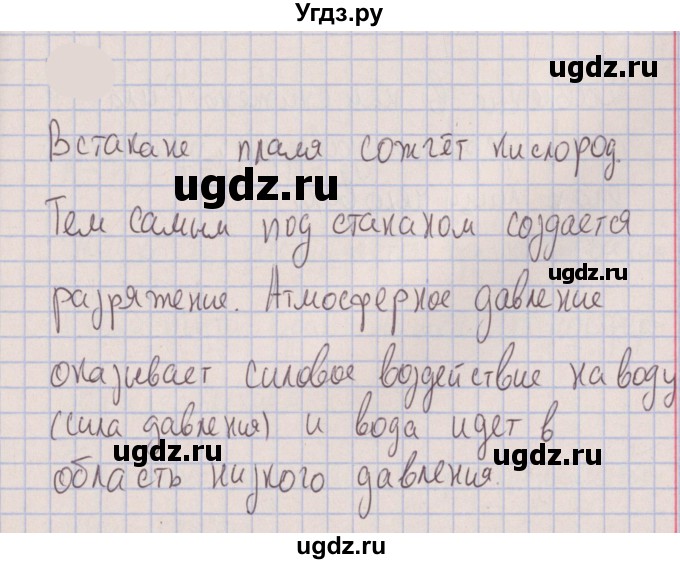 Угдз.ру
ugdz.ru
В стакане пламя сожгёт кислород.
ugdz.ru
Тем самым под стаканом создается
ugdz.ru
разряжение. Атмосферное давление
оказивает силовое воздействие на воду
(сила давления) и вода идет в
ugdz.ru
ugdz.ru
область низкого давления.
ugdz.ru